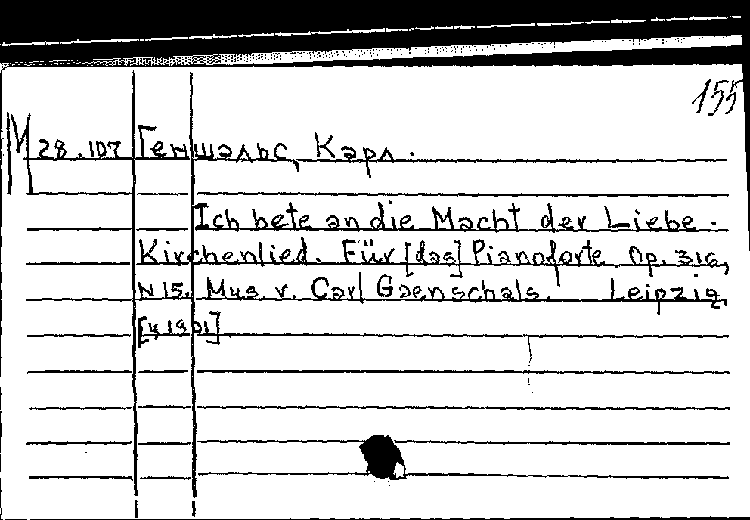 155
М 28.107 Геншальс, Карл.
Ich bete an die Macht der Liebe.
Kirchenlied. Für [das] Pianoforte. Op. 31a,
N 15. Mus. v. Carl Gaenschals. Leipzig,
[ц. 1901]